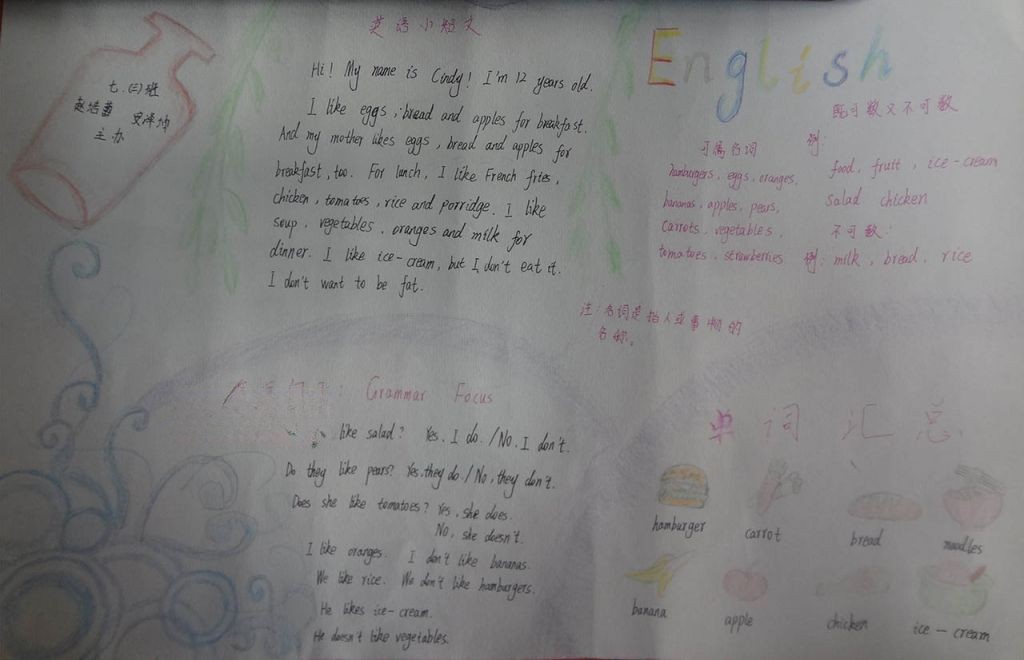 七.(三)班
主办
英语小短文
Hi! My name is Cindy! I'm 12 years old.
I like eggs, bread and apples for breakfast.
And my mother likes eggs, bread and apples for
breakfast, too. For lunch, I like French fries,
chicken, tomatoes, rice and porridge. I like
soup, vegetables, oranges and milk for
dinner. I like ice-cream, but I don't eat it.
I don't want to be fat.
English
可属名词
hamburgers, eggs, oranges,
bananas, apples, pears,
carrots, vegetables,
tomatoes, strawberries
既可数又不可数
例:
food, fruit, ice-cream
salad chicken
不可数:
例: milk, bread, rice
注:名词是指人或事物的
名称。
Grammar Focus
like salad? Yes, I do. /No, I don't.
Do they like pears? Yes, they do. / No, they don't.
Does she like tomatoes? Yes, she does.
No, she doesn't.
I like oranges. I don't like bananas.
We like rice. We don't like hamburgers.
He likes ice-cream.
He doesn't like vegetables.
单词汇总
hamburger
carrot
bread
noodles
banana
apple
chicken
ice-cream